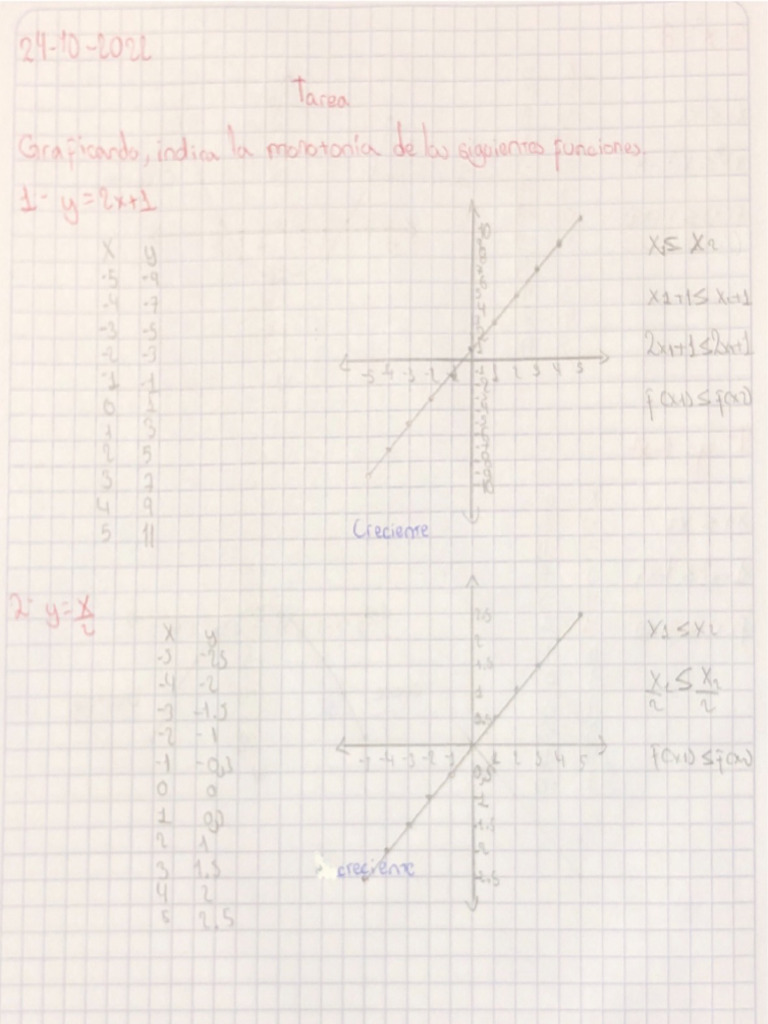 24-10-2022
Tarea
Graficando, indica la monotonía de las siguientes funciones.
1- y = 2x+1
x y
-5 -9
-4 -7
-3 -5
-2 -3
-1 -1
0 1
1 3
2 5
3 7
4 9
5 11
-5 -4 -3 -2 -1 1 2 3 4 5
x1 ≤ x2
x1+1 ≤ x2+1
2x1+1 ≤ 2x2+1
f(x1) ≤ f(x2)
Creciente
2- y = x/2
x y
-5 -2.5
-4 -2
-3 -1.5
-2 -1
-1 -0.5
0 0
1 0.5
2 1
3 1.5
4 2
5 2.5
2.5
2
1.5
1
0.5
-5 -4 -3 -2 -1 1 2 3 4 5
0.5
1
1.5
2
2.5
x1 ≤ x2
x1/2 ≤ x2/2
f(x1) ≤ f(x2)
creciente